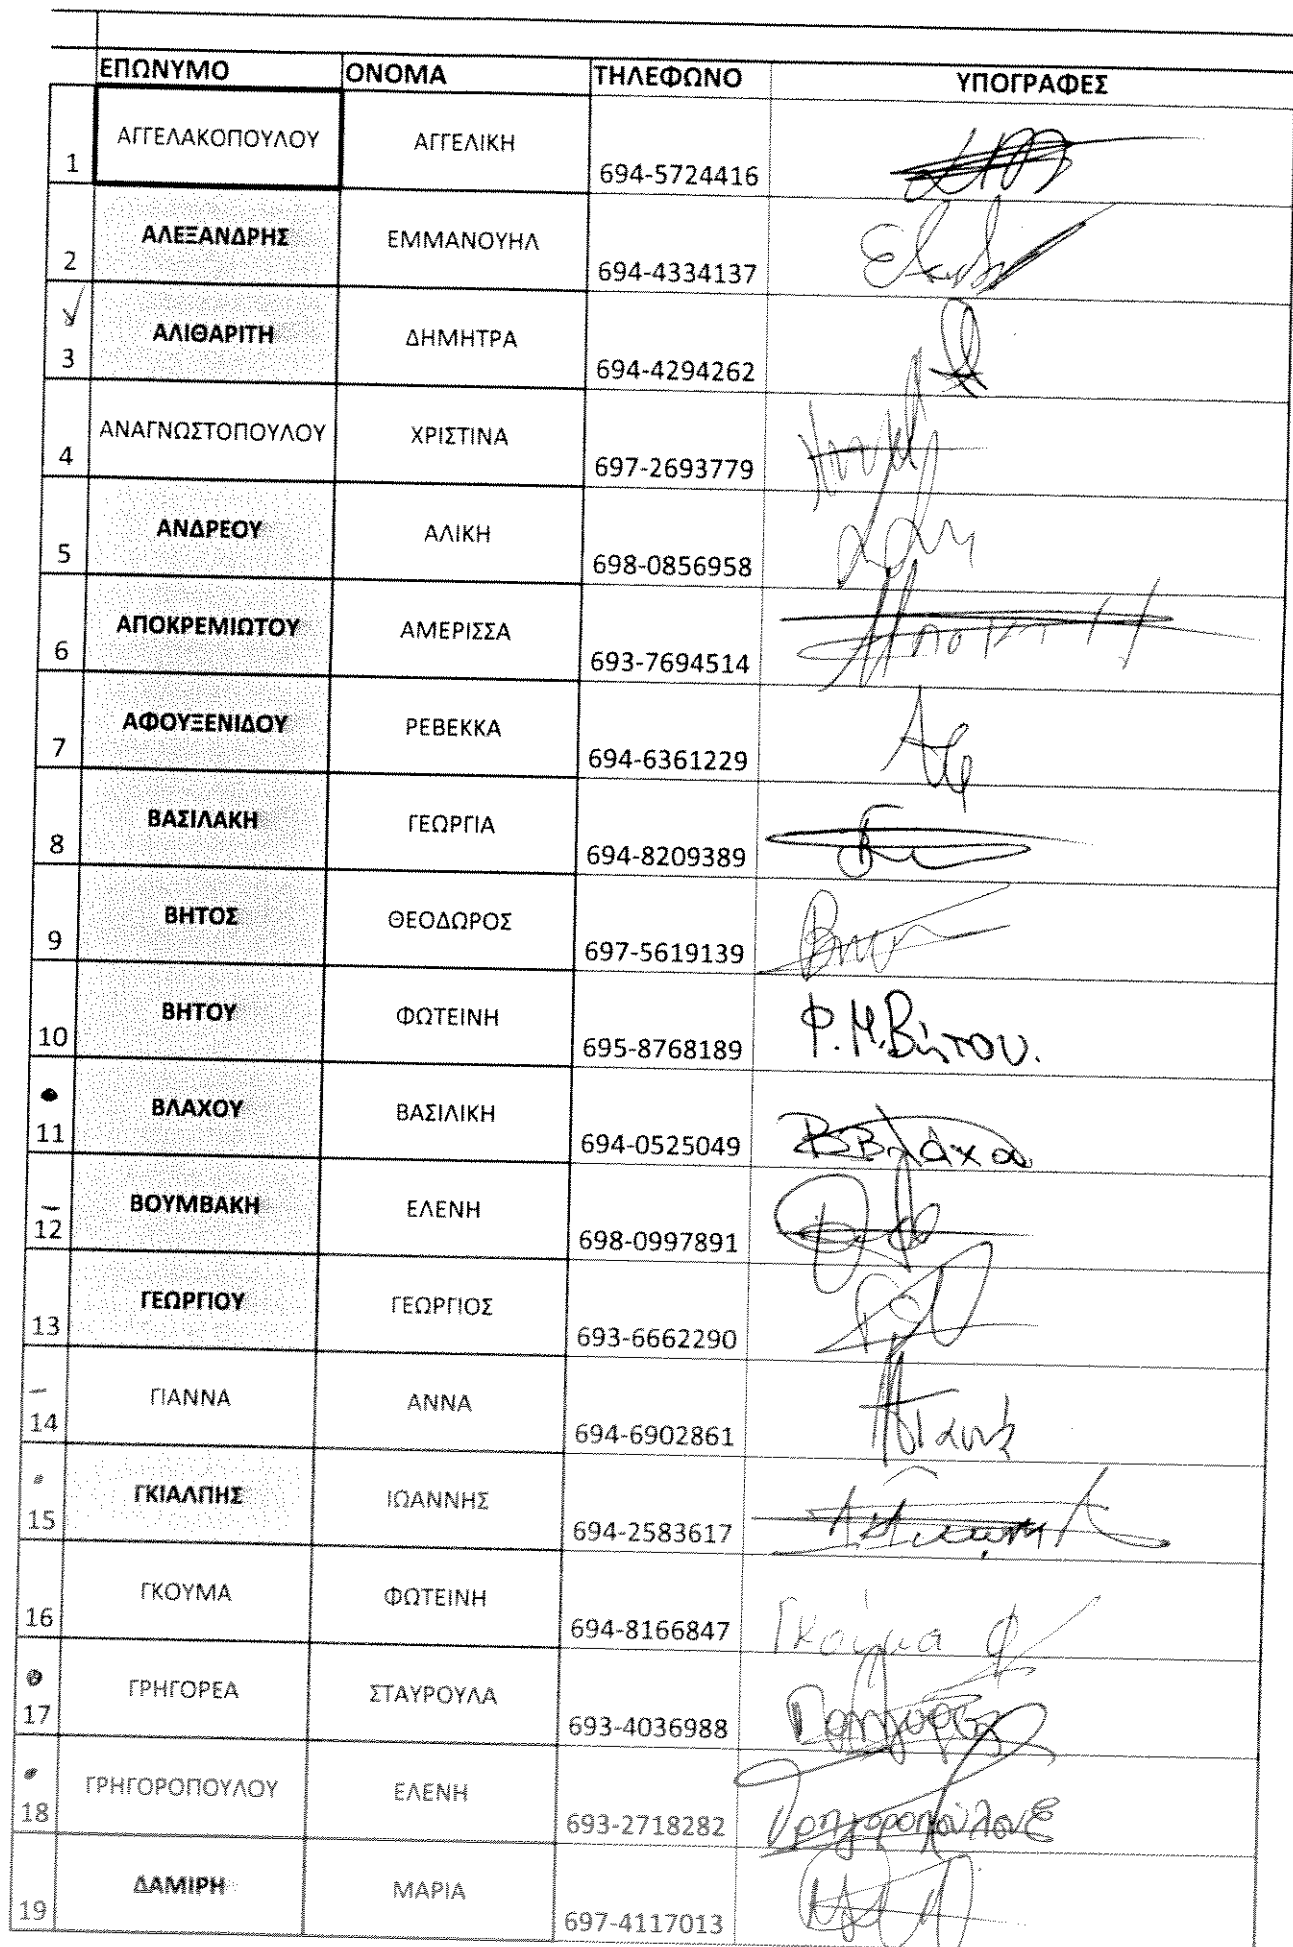 ΕΠΩΝΥΜΟ ΟΝΟΜΑ ΤΗΛΕΦΩΝΟ ΥΠΟΓΡΑΦΕΣ
1 ΑΓΓΕΛΑΚΟΠΟΥΛΟΥ ΑΓΓΕΛΙΚΗ 694-5724416
2 ΑΛΕΞΑΝΔΡΗΣ ΕΜΜΑΝΟΥΗΛ 694-4334137
3 ΑΛΙΘΑΡΙΤΗ ΔΗΜΗΤΡΑ 694-4294262
4 ΑΝΑΓΝΩΣΤΟΠΟΥΛΟΥ ΧΡΙΣΤΙΝΑ 697-2693779
5 ΑΝΔΡΕΟΥ ΑΛΙΚΗ 698-0856958
6 ΑΠΟΚΡΕΜΙΩΤΟΥ ΑΜΕΡΙΣΣΑ 693-7694514
7 ΑΦΟΥΞΕΝΙΔΟΥ ΡΕΒΕΚΚΑ 694-6361229
8 ΒΑΣΙΛΑΚΗ ΓΕΩΡΓΙΑ 694-8209389
9 ΒΗΤΟΣ ΘΕΟΔΩΡΟΣ 697-5619139
10 ΒΗΤΟΥ ΦΩΤΕΙΝΗ 695-8768189 Φ.Μ.Βήτου.
11 ΒΛΑΧΟΥ ΒΑΣΙΛΙΚΗ 694-0525049
12 ΒΟΥΜΒΑΚΗ ΕΛΕΝΗ 698-0997891
13 ΓΕΩΡΓΙΟΥ ΓΕΩΡΓΙΟΣ 693-6662290
14 ΓΙΑΝΝΑ ΑΝΝΑ 694-6902861
15 ΓΚΙΑΛΠΗΣ ΙΩΑΝΝΗΣ 694-2583617
16 ΓΚΟΥΜΑ ΦΩΤΕΙΝΗ 694-8166847 Γκούμα Φ
17 ΓΡΗΓΟΡΕΑ ΣΤΑΥΡΟΥΛΑ 693-4036988
18 ΓΡΗΓΟΡΟΠΟΥΛΟΥ ΕΛΕΝΗ 693-2718282 Γρηγοροπούλου Ε
19 ΔΑΜΙΡΗ ΜΑΡΙΑ 697-4117013